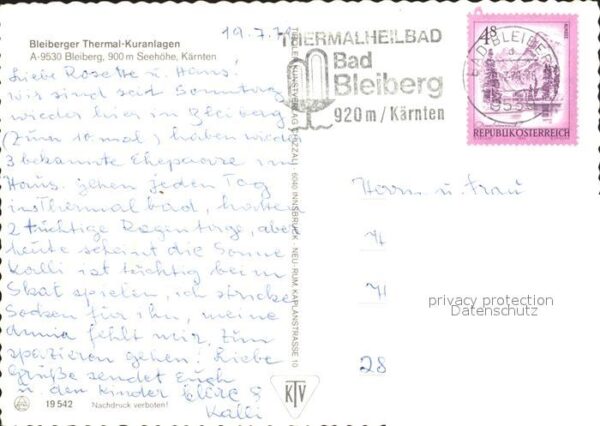 19.7.7
Bleiberger Thermal-Kuranlagen
A-9530 Bleiberg, 900 m Seehöhe, Kärnten
Liebe Rosette u. Hans!
wir sind seit Sonntag
wieder hier in Bleiberg
(zum 10. mal) haben wieder
3 bekannte Ehepaare im
Haus. gehen jeden Tag
ins Thermalbad, hatten
2 tüchtige Regentage, aber
heute scheint die Sonne
Kalli ist tüchtig beim
Skat spielen, ich stricke
Socken für ihn, meine
fehlt mir, zum
spazieren gehen! Liebe
Grüße sendet Euch
u. den Kinder &
Kalli
19 542 Nachdruck verboten!
TIROLER KUNSTVERLAG CHIZZALI · 6040 INNSBRUCK - NEU-RUM, KAPLANSTRASSE 10
KTV
THERMALHEILBAD
Bad
Bleiberg
920 m / Kärnten
4 S
REPUBLIK ÖSTERREICH
BAD BLEIBERG
Herrn u. Frau
H
H
28
privacy protection
Datenschutz